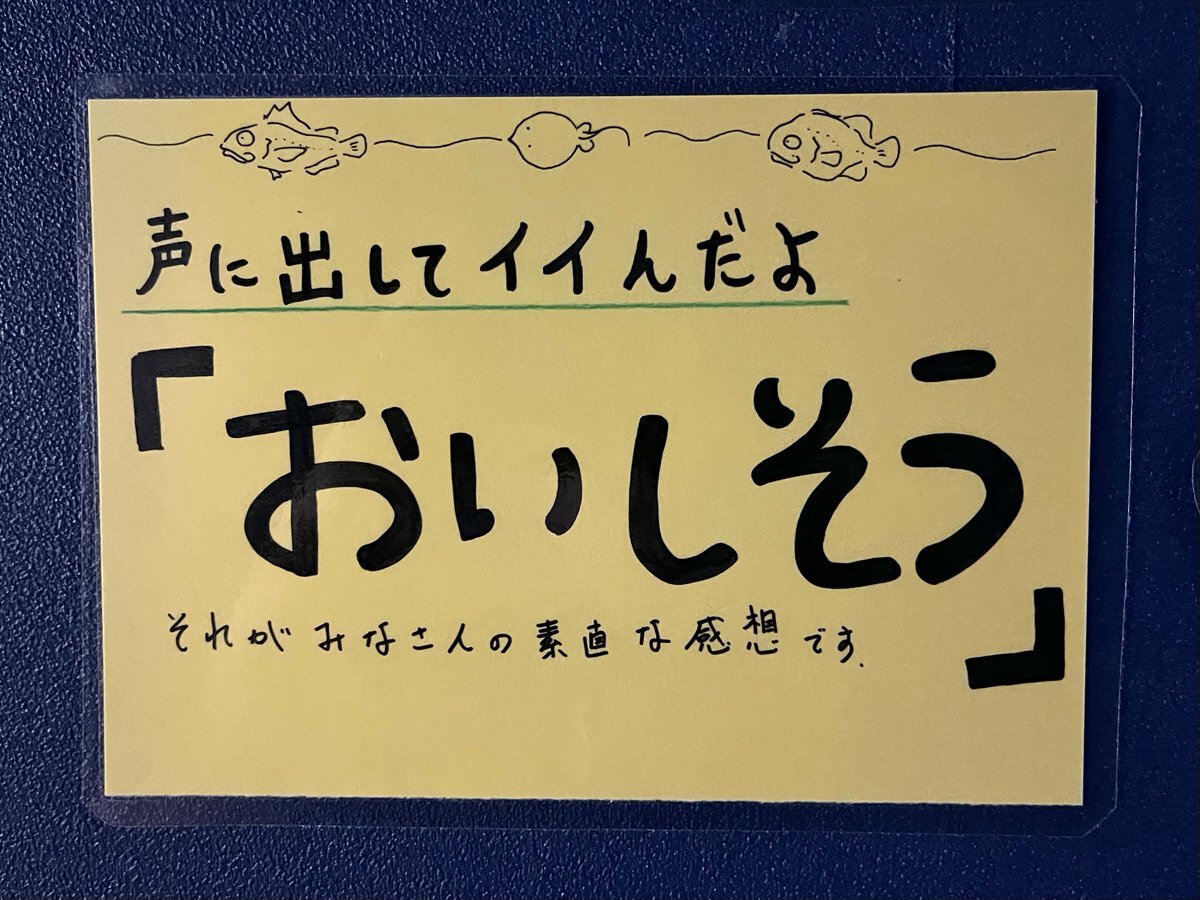 声に出してイイんだよ
「おいしそう」
それがみなさんの素直な感想です.